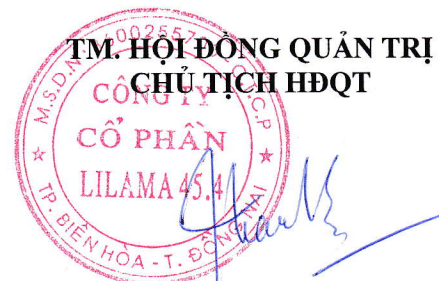 TM. HỘI ĐỒNG QUẢN TRỊ
CHỦ TỊCH HĐQT
CÔNG TY
CỔ PHẦN
LILAMA 45.4
TP. BIÊN HÒA - T. ĐỒNG NAI